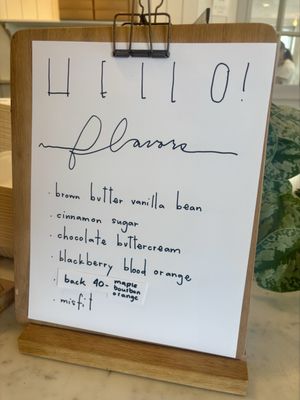 HELLO!
flavors
· brown butter vanilla bean
· cinnamon sugar
· chocolate buttercream
· blackberry blood orange
· back 40- maple bourbon orange
· misfit